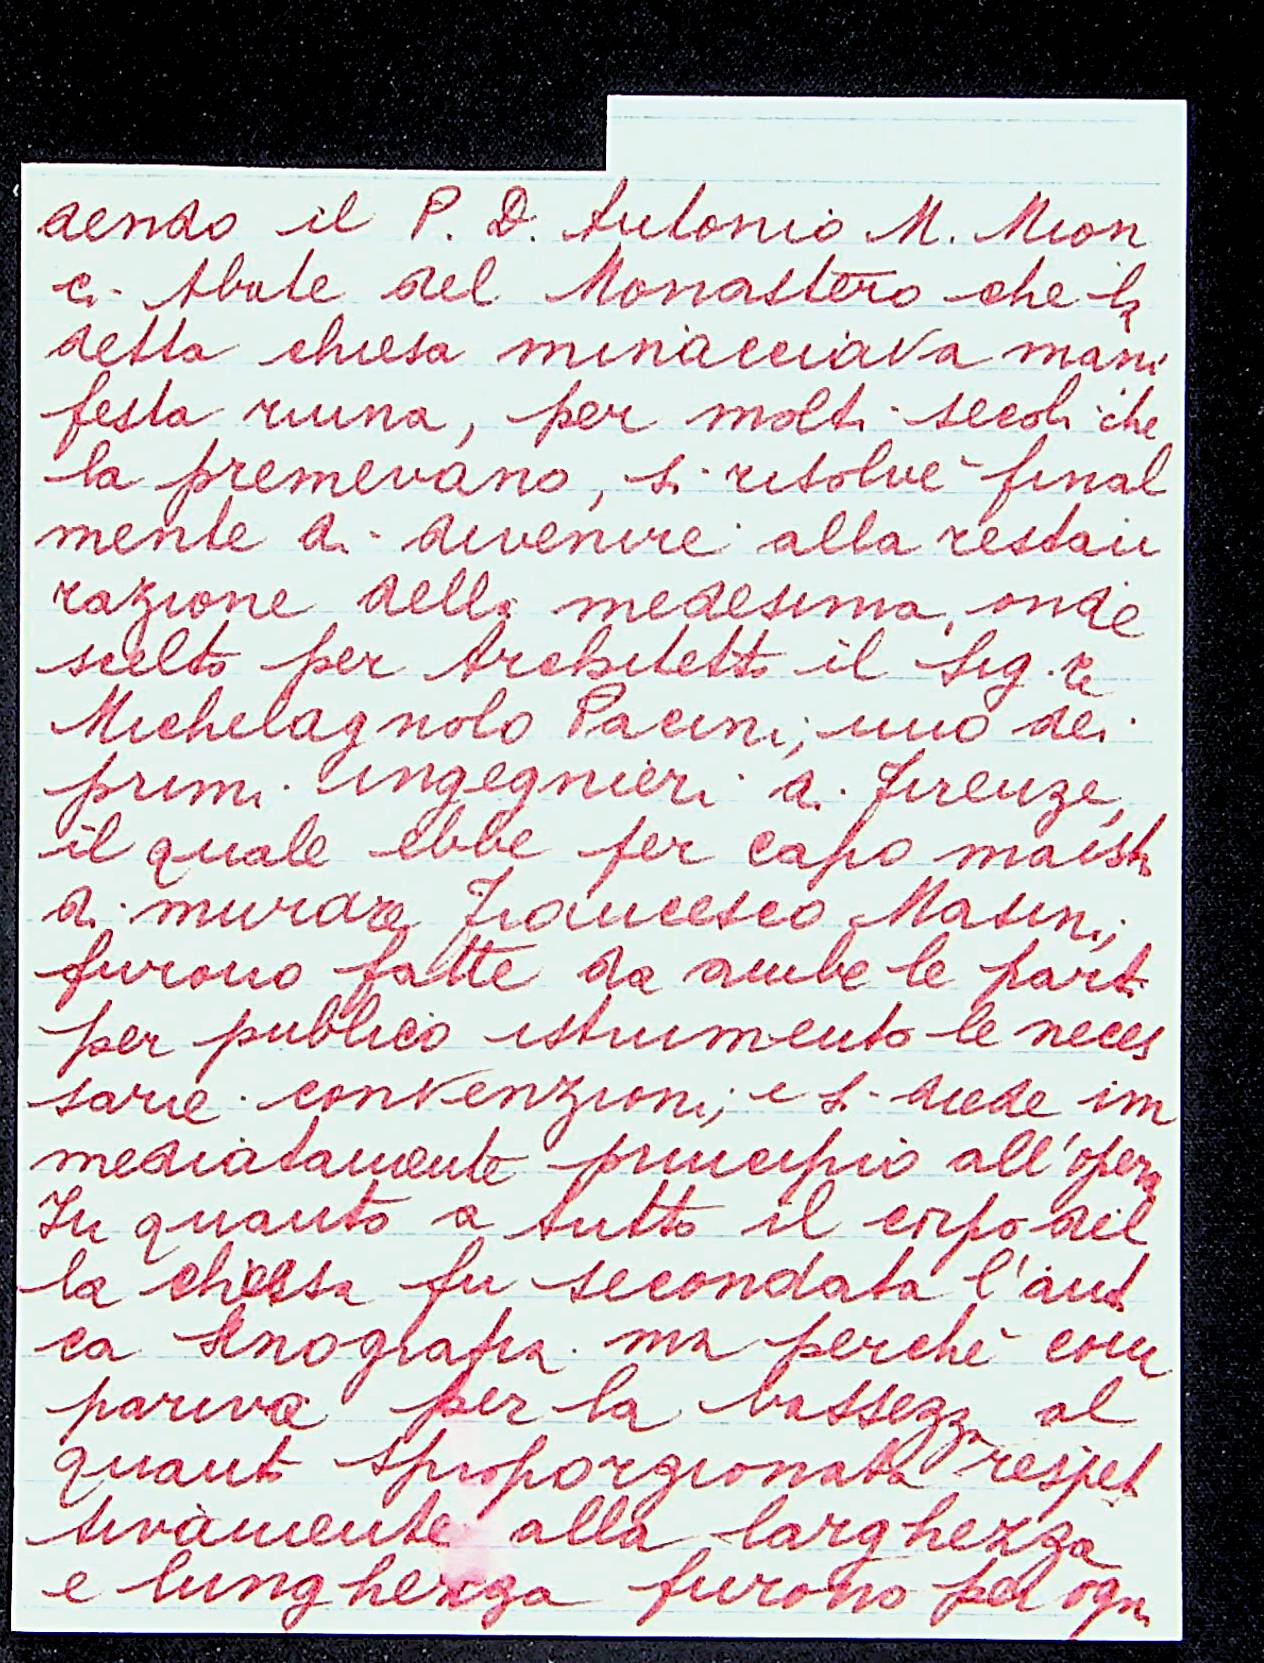 dendo il P. D. Antonio M. Mion
ci Abate del Monastero che la
detta chiesa minacciava mani
festa ruina, per molti secoli che
la premevano, si risolvè final
mente di divenire alla restau
razione della medesima, onde
scelto per Architetto il Sig.re
Michelagnolo Pacini, uno dei
primi ingegnieri di Firenze,
il quale ebbe per capo maestr
di murare Francesco Masini,
furono fatte da ambe le parti
per publico istrumento le neces
sarie convenzioni, e si diede im
mediatamente principio all'opera
In quanto a tutto il corpo del
la chiesa fu secondata l'anti
ca Icnografia ma perchè com
pariva per la bassezza al
quanto sproporzionata respet
tivamente alla larghezza
e lunghezza furono per ogni